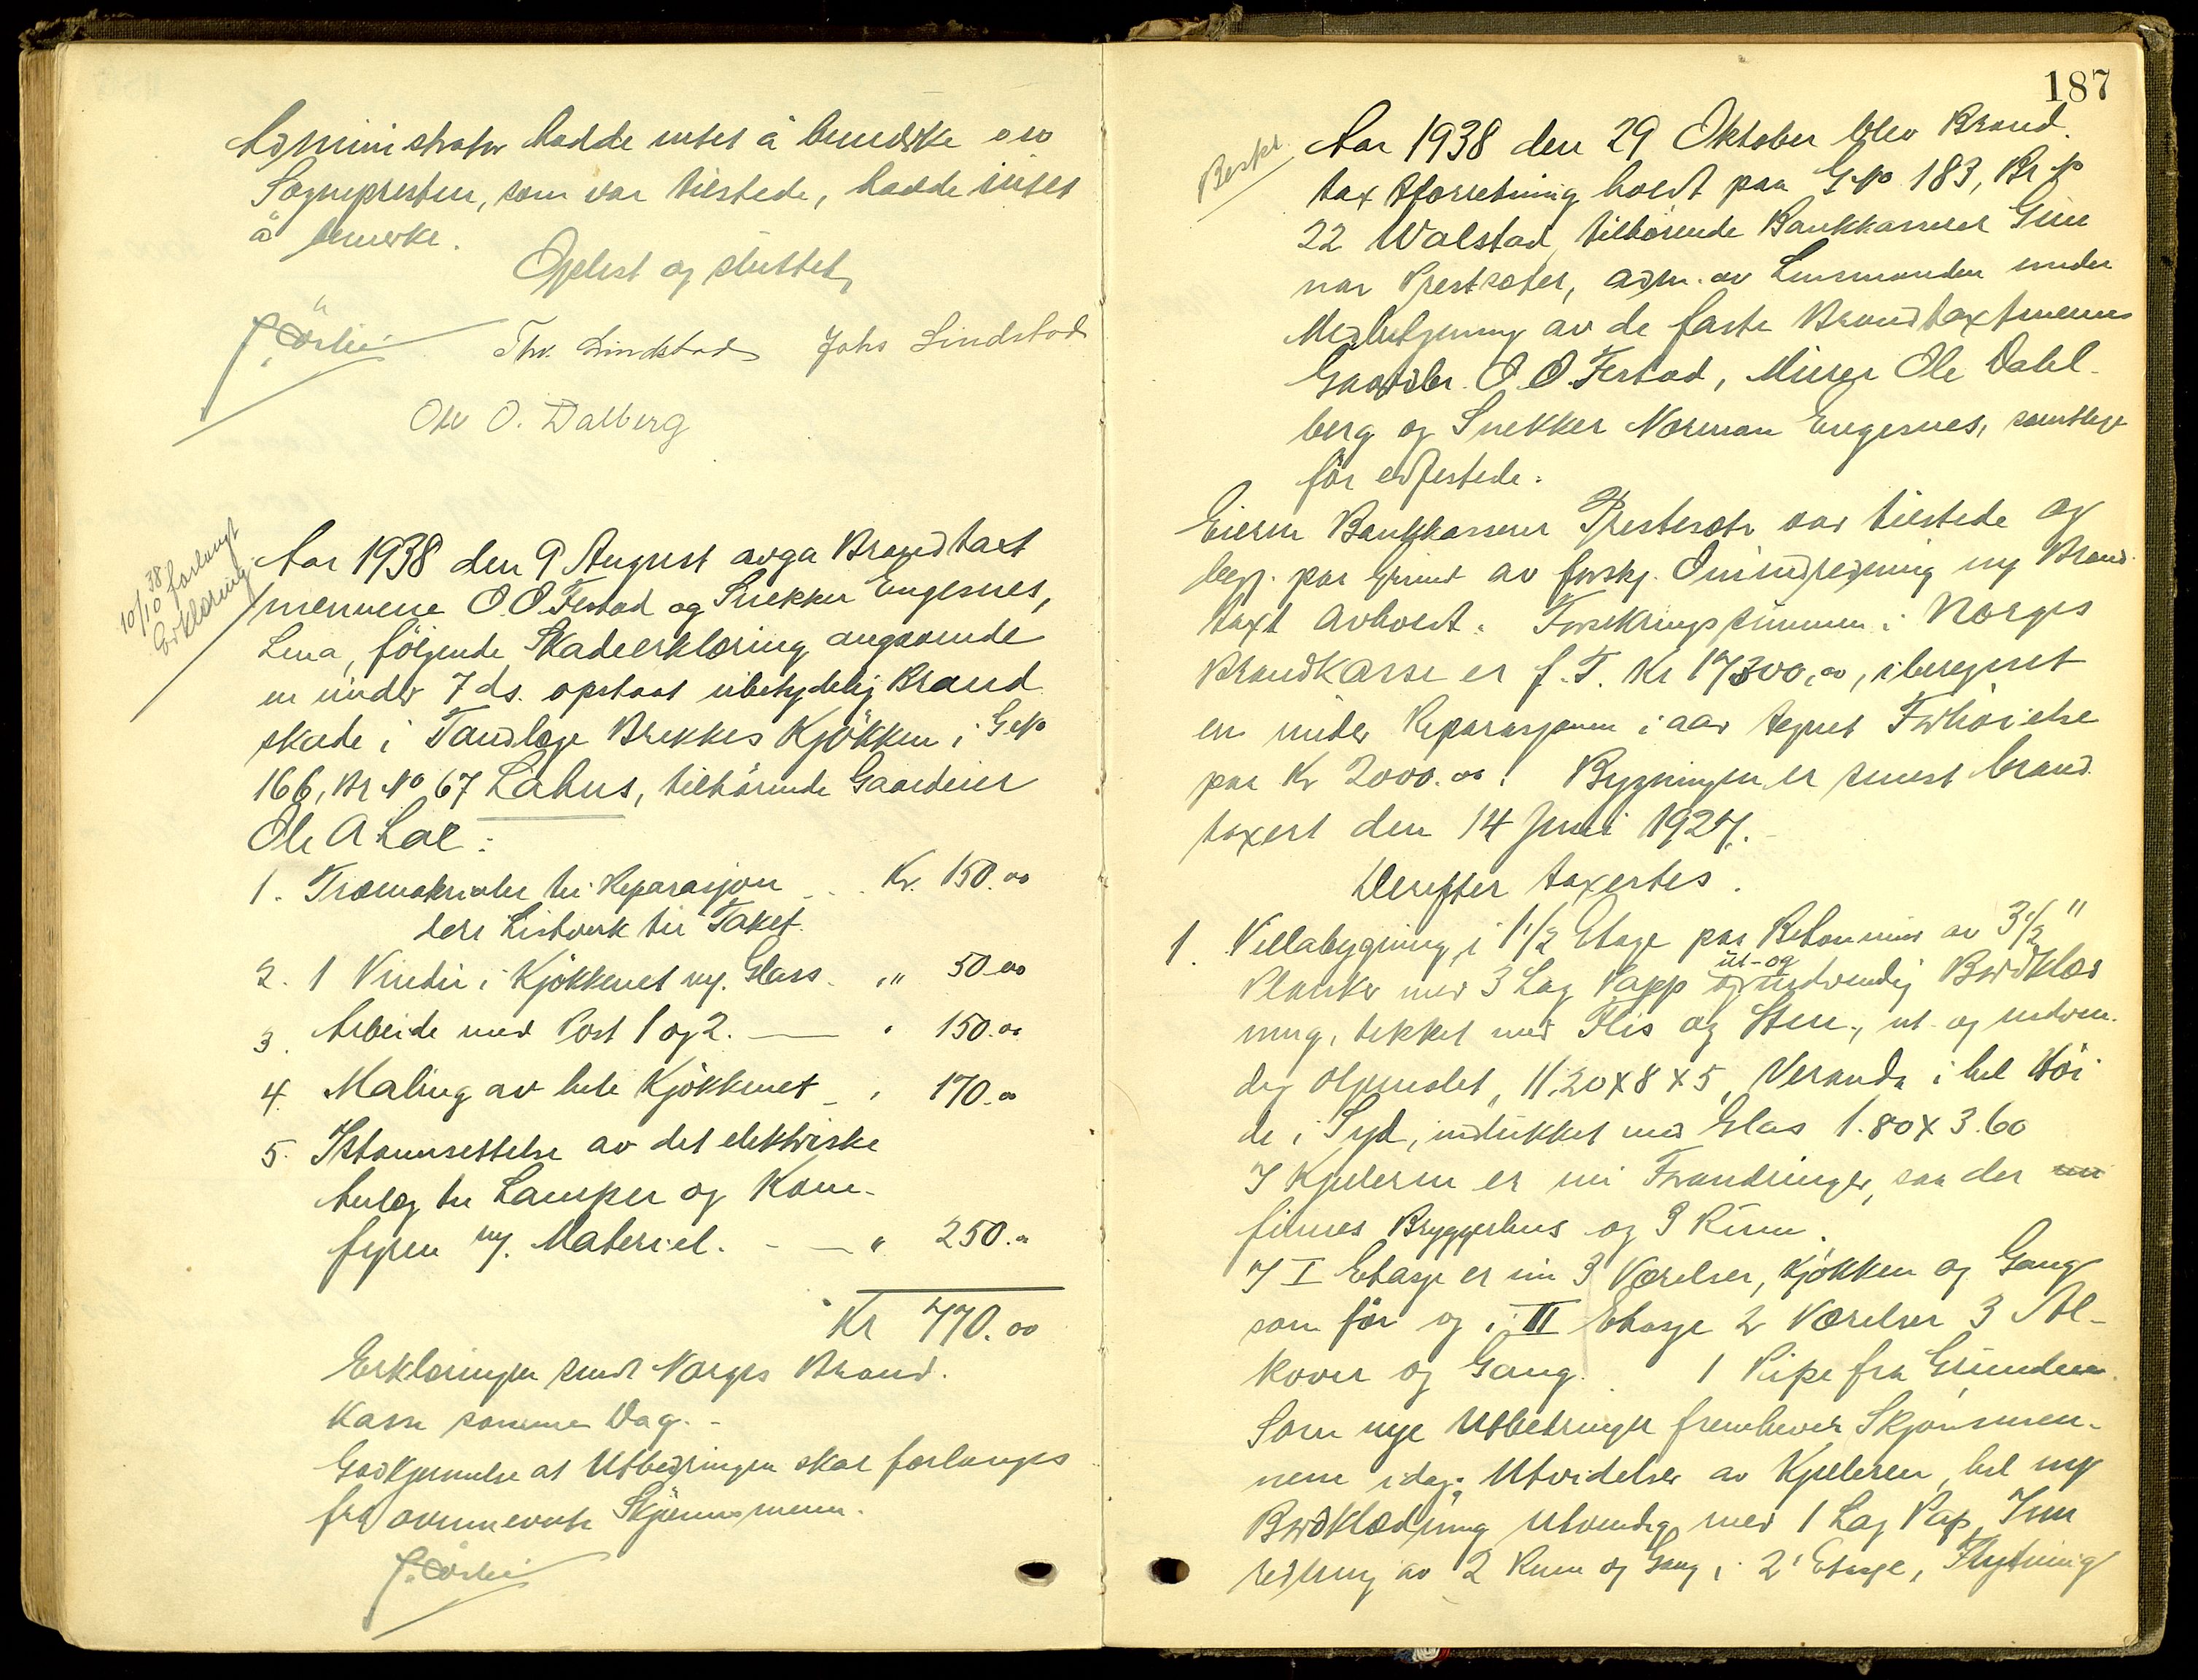 Administrator hadde intet å bemerke og
Sognepresten, som var tilstede, hadde intet
å bemerke.
Oplest og sluttet
J. Örlie
Thv. Lindstad Johs Lindstad
Ole O. Dalberg
10/10 38 forlangt
Erklæring.
Aar 1938 den 9 August avga Brandtaxt
mennene O.O. Festad og Snekker Engesnes,
Lena, følgende Skadeerklæring angaaende
en under 7 ds. opstaat ubetydelig Brand
skade i Tandlæge Brekkes Kjökken i G№
166, Br № 67 Låhus, tilhörende Gaardeier
Ole A Lae:
1. Træmaterialer til Reparasjon Kr. 150.00
Listverk til Taket.
2. 1 Vindu i Kjökkenet ny. Glass. " 50.00
3. Arbeide med Post 1 og 2. — " 150.00
4. Maling av hele Kjökkenet " 170.00
5. Istannsettelse av det elektriske
Anlæg til Lamper og Kom-
fyren ny. Materiel. - — " 250.00
Kr 770.00
Erklæringen sendt Norges Brand.
Kasse samme Dag. -
Godkjennelse at Utbedringen skal forlanges
fra ovennevnte Skjønnsmenn.
J. Örlie
187
Aar 1938 den 29 Oktober blev Brand.
taxtforretning holdt paa G№ 183, Br №
22 Valstad, tilhörende Bankkasserer Gun
nar Prestsæter, adm. av Lensmanden under
Medbetjening av de faste Brandtaxtmenn
Gaardbr. O.O. Festad, Murer Ole Dahl-
berg og Snekker Norman Engesnes, samtlige
för edfestede.
Eieren Bankkasserer Prestesæter var tilstede og
begj. paa Grund av forskj. Omindredning ny Brand.
taxt avholdt. Forsikringssummen i Norges
Brandkasse er f. T. Kr 17300,00, iberegnet
en under Reparasjonen i aar tegnet Forhöielse
paa Kr 2000.00. Bygningen er senest brand.
taxert den 14 Juni 1927.-
Derefter taxertes.
1. Villabygning i 1 1/2 Etage paa Betonmur av 3 1/2"
Planker med 3 Lag Papp ut-og indvendig Bordklæd
ning, tekket med Flis og Sten, ut- og indven-
dig oljemalet, 11.20 x 8 x 5, Veranda i hel Höi
de i Syd, indlukket med Glas 1.80 x 3.60
I Kjeleren er nu Forandringer, saa der
finnes Bryggerhus og 3 Rum.
I I Etasje er nu 3 Værelser, Kjökken og Gang
som för og i II Etasje 2 Værelser 3 Al-
kover og Gang. 1 Pipe fra Grunden.
Som nye Utbedringer fremhever Skjönsmen-
nene idag: Utvidelse av Kjeleren, hel ny
Bordklædning utvendig med 1 Lag Pap, Inn
redning av 2 Rum og Gang i 2' Etasje, Flytning